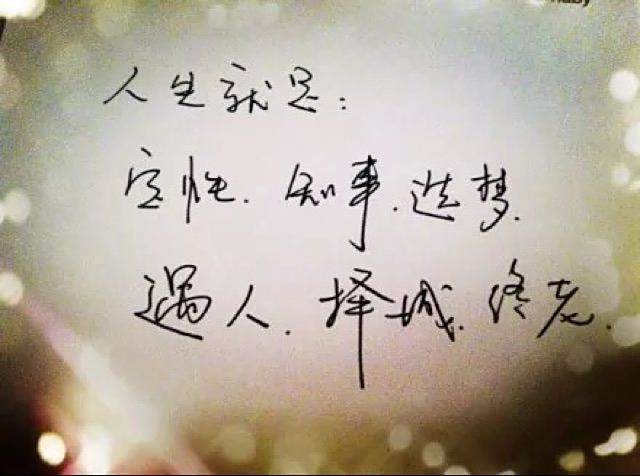 人生就是:
定性.知事.造梦.
遇人.择城.终老.